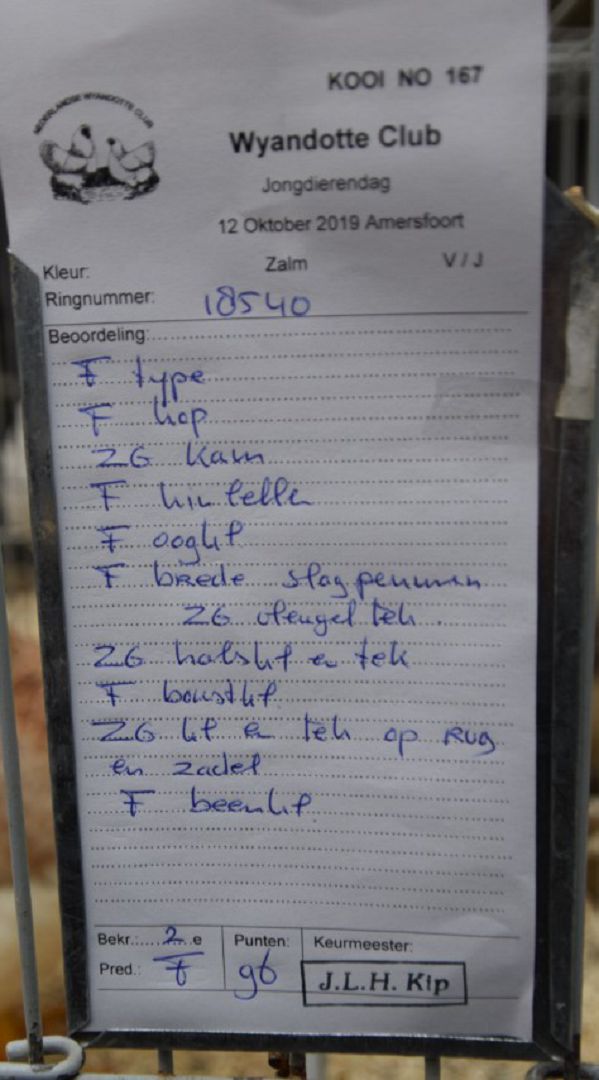 NEDERLANDSE WYANDOTTE CLUB
KOOI NO 167
Wyandotte Club
Jongdierendag
12 Oktober 2019 Amersfoort
Kleur: Zalm V / J
Ringnummer: 18540
Beoordeling:
F type
F kop
ZG kam
F kinlellen
F ooglif
F brede slagpennen
ZG vleugel tek.
ZG halsklf en tek
F borstklf
ZG klf en tek op Rug
en zadel
F beenklf.
Bekr.: 2 e Punten: Keurmeester:
Pred.: F 96 J.L.H. Kip